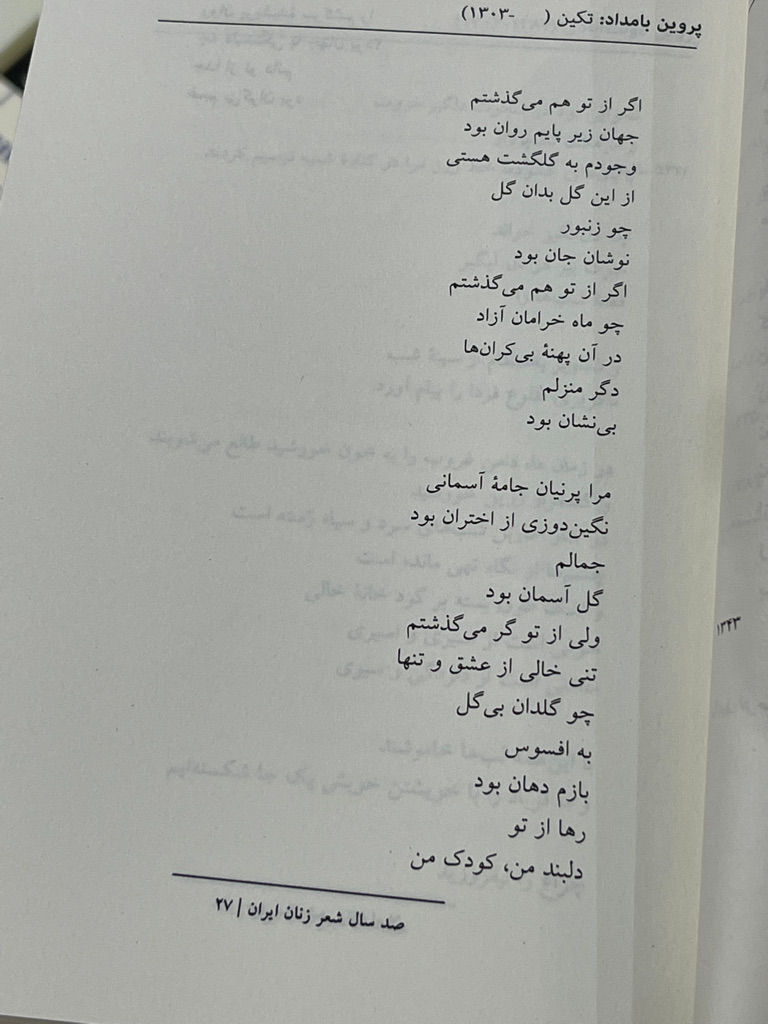 پروین بامداد: تکین (      -۱۳۰۳)
اگر از تو هم می‌گذشتم
جهان زیر پایم روان بود
وجودم به گلگشت هستی
از این گل بدان گل
چو زنبور
نوشان جان بود
اگر از تو هم می‌گذشتم
چو ماه خرامان آزاد
در آن پهنهٔ بی‌کران‌ها
دگر منزلم
بی‌نشان بود
مرا پرنیان جامهٔ آسمانی
نگین‌دوزی از اختران بود
جمالم
گل آسمان بود
ولی از تو گر می‌گذشتم
تنی خالی از عشق و تنها
چو گلدان بی‌گل
به افسوس
بازم دهان بود
رها از تو
دلبند من، کودک من
صد سال شعر زنان ایران | ۲۷
۱۳۴۳